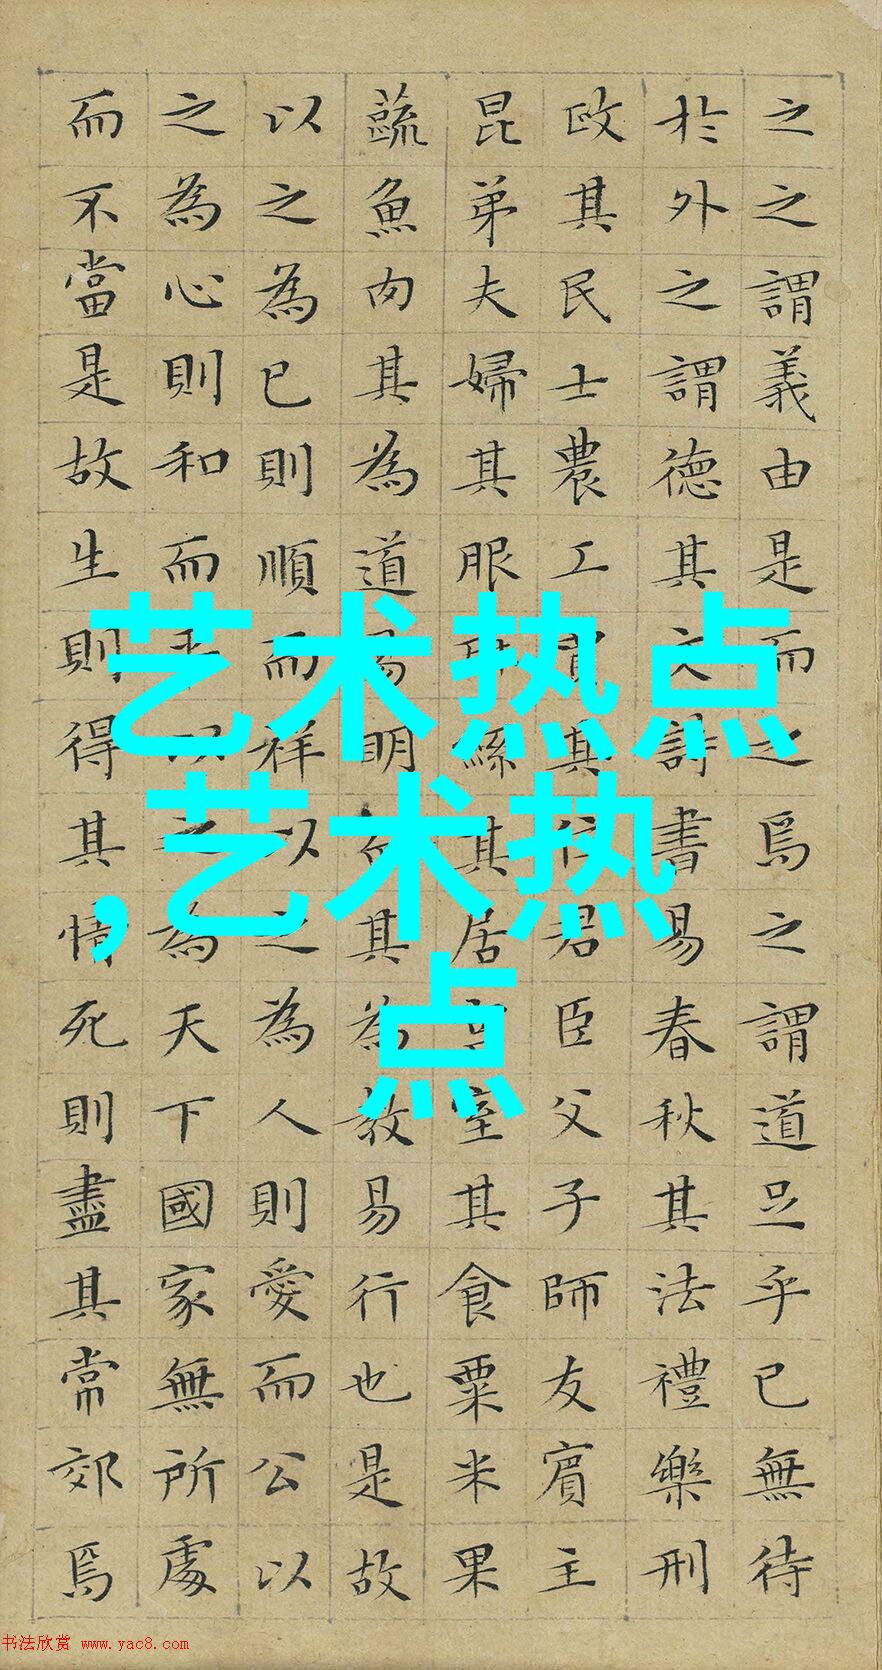 之之謂義由是而之焉之謂道足乎已無待
於外之謂德其文詩書易春秋其法禮樂刑
政其民士農工賈其位君臣父子師友賓主
昆弟夫婦其服麻絲其居宮室其食粟米果
蔬魚肉其為道易明而其為教易行也是故
以之為已則順而祥以之為人則愛而公以
之為心則和而平以之為天下國家無所處
而不當是故生則得其情死則盡其常郊焉
艺术热点
,艺术热
点
书法欣赏 www.yac8.com